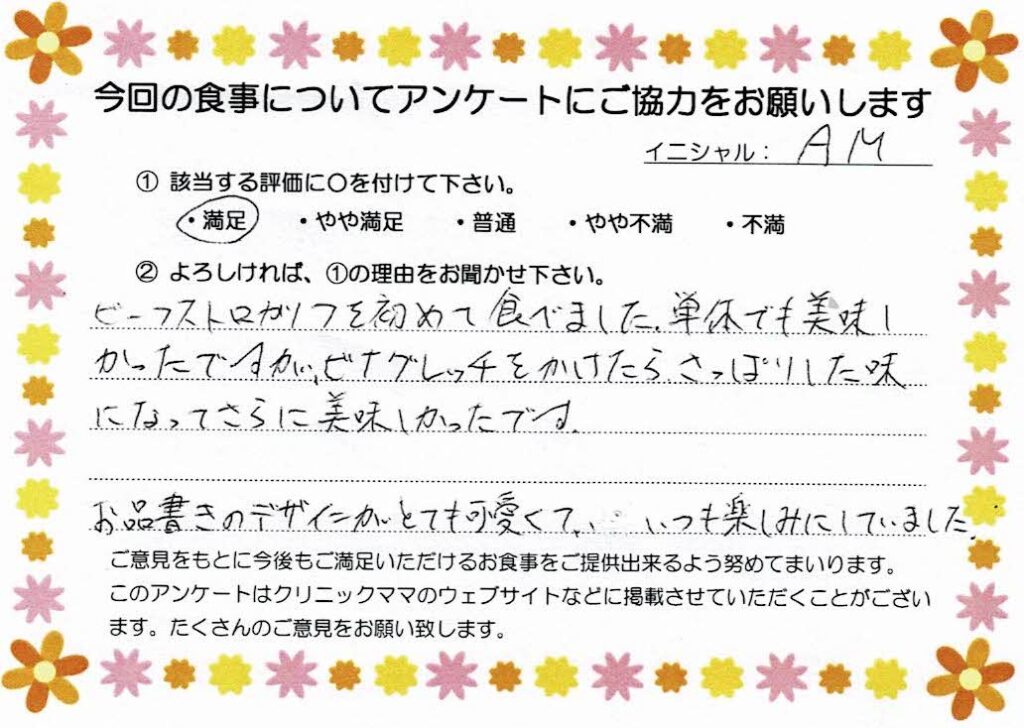 今回の食事についてアンケートにご協力をお願いします
イニシャル： AM
① 該当する評価に〇を付けて下さい。
・満足 ・やや満足 ・普通 ・やや不満 ・不満
② よろしければ、①の理由をお聞かせ下さい。
ビーフストロガノフを初めて食べました。単体でも美味し
かったですが、ビナグレッチをかけたら、さっぱりした味
になってさらに美味しかったです。
お品書きのデザインがとても可愛くて、いつも楽しみにしていました。
ご意見をもとに今後もご満足いただけるお食事をご提供出来るよう努めてまいります。
このアンケートはクリニックママのウェブサイトなどに掲載させていただくことがござい
ます。たくさんのご意見をお願い致します。